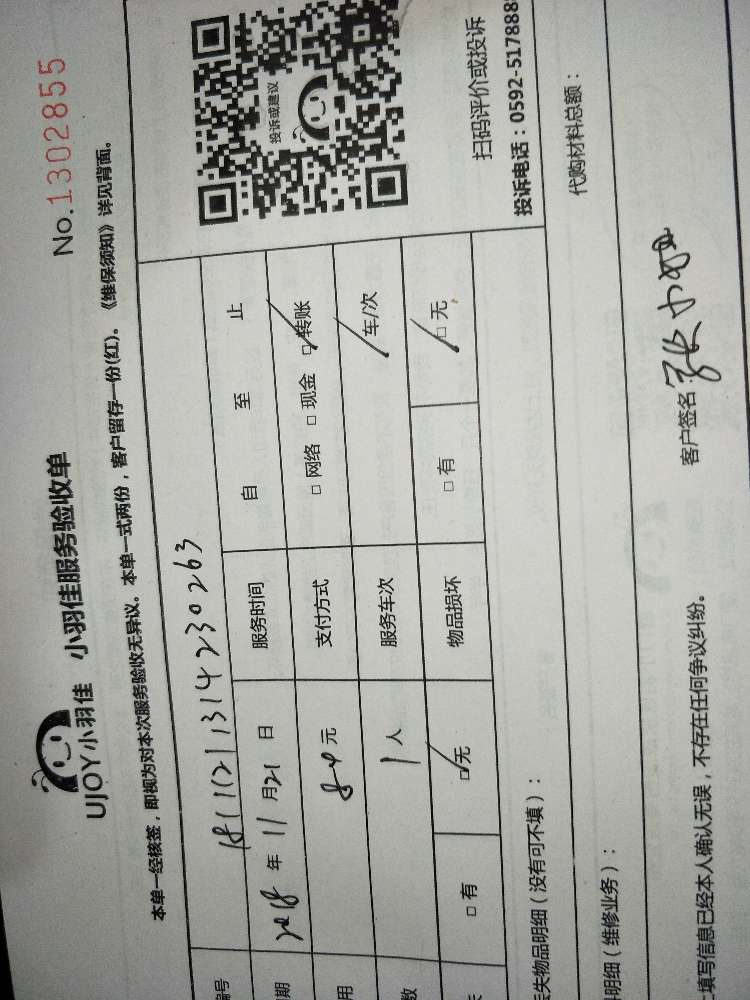 No.1302855
UJOY小羽佳 小羽佳服务验收单
本单一经核签，即视为对本次服务验收无异议。本单一式两份，客户留存一份(红)。《维保须知》详见背面。
投诉或建议
编号 181121131423 0263
期 2018 年 11 月 21 日 服务时间 自 至 止
用 80 元 支付方式 □ 网络 □ 现金 □ 转账
数 1 人 服务车次 车/次
失 □ 有 □ 无 物品损坏 □ 有 □ 无
扫码评价或投诉
投诉电话：0592-5178889
失物品明细（没有可不填）：
代购材料总额：
明细（维修业务）：
填写信息已经本人确认无误，不存在任何争议纠纷。
客户签名：张小